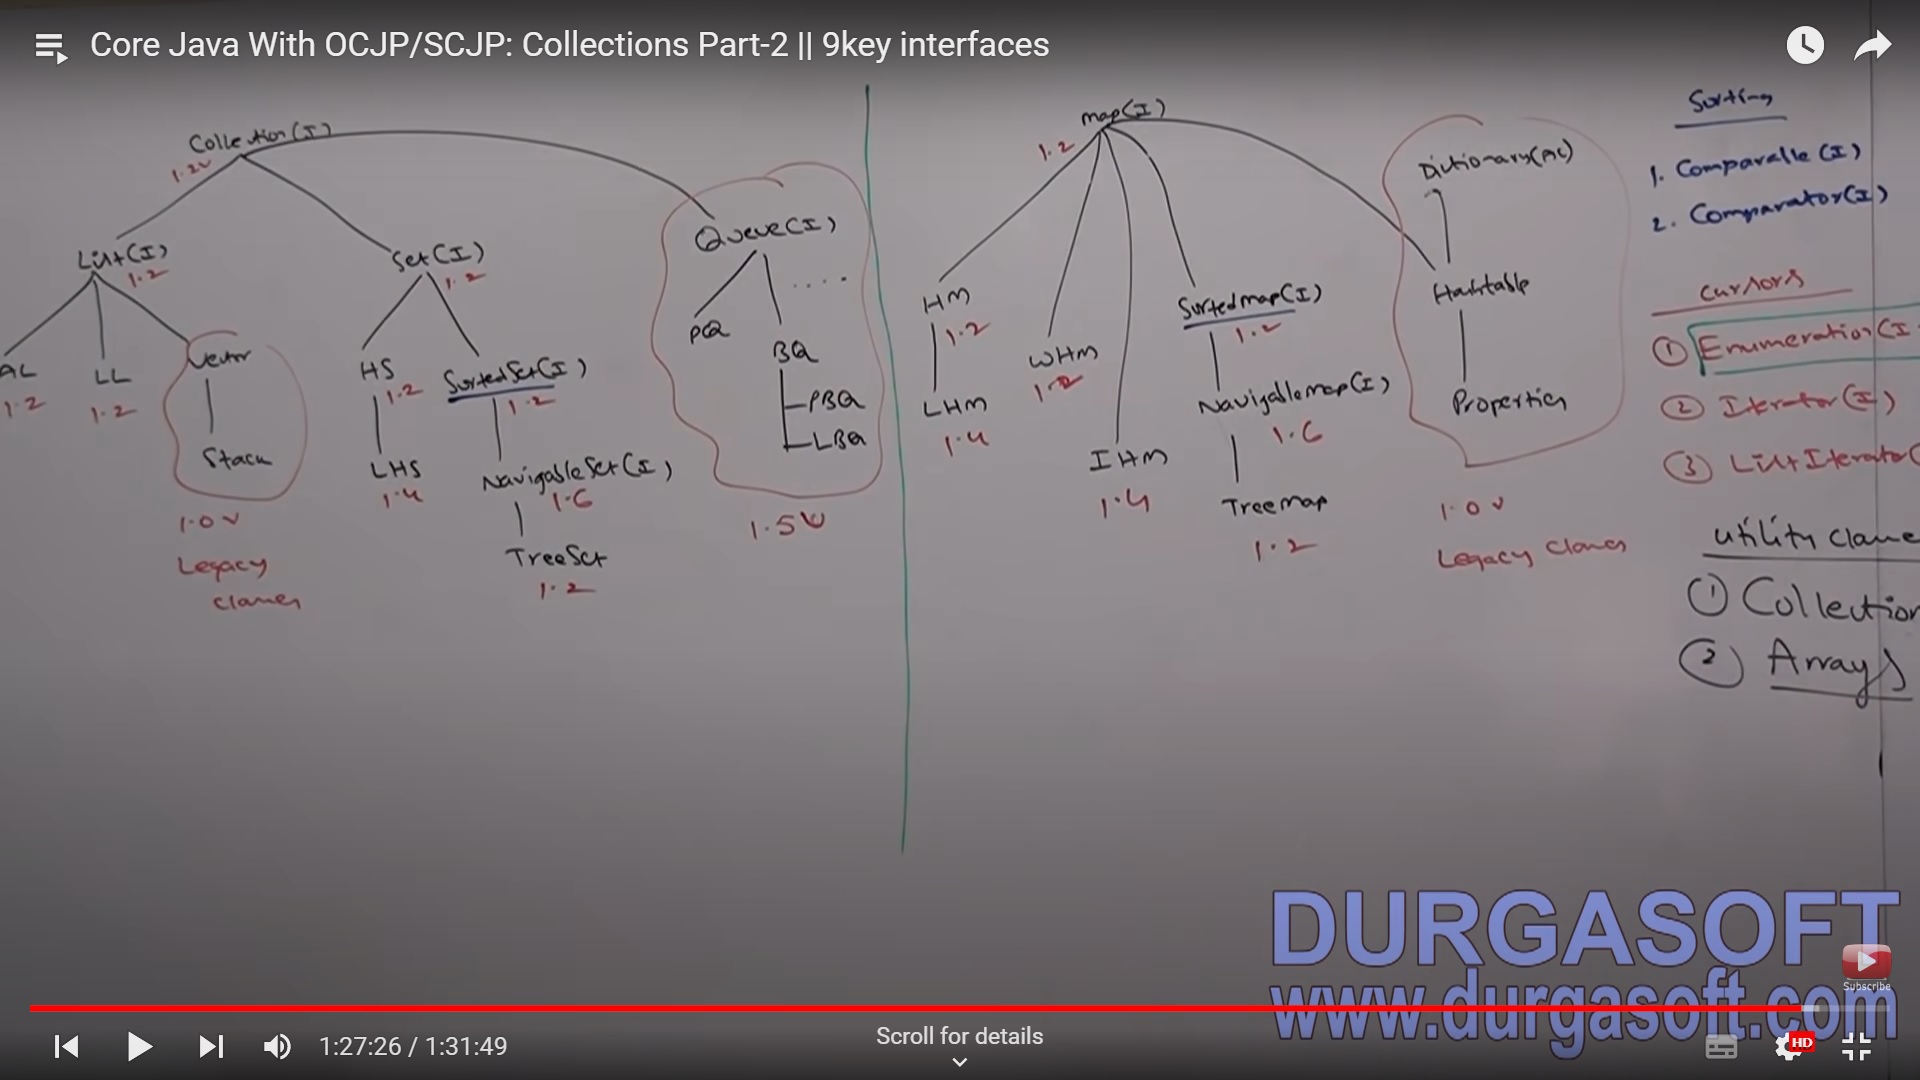 Core Java With OCJP/SCJP: Collections Part-2 || 9key interfaces
Collection(I)
1.2v
List(I)
1.2
AL
1.2
LL
1.2
Vector
Stack
1.0 v
Legacy
classes
Set(I)
1.2
HS
1.2
LHS
1.4
SortedSet(I)
1.2
NavigableSet(I)
1.6
TreeSet
1.2
Queue(I)
....
PQ
BQ
PBQ
LBQ
1.5v
map(I)
1.2
HM
1.2
LHM
1.4
WHM
1.2
IHM
1.4
Sortedmap(I)
1.2
Navigablemap(I)
1.6
Treemap
1.2
Dictionary(AC)
Hashtable
Properties
1.0 v
Legacy classes
Sorting
1. Comparable (I)
2. Comparator(I)
cursors
① Enumeration(I
② Iterator(I)
③ ListIterator(
utility classe
① Collection
② Arrays
DURGASOFT
www.durgasoft.com
Subscribe
1:27:26 / 1:31:49
Scroll for details
HD